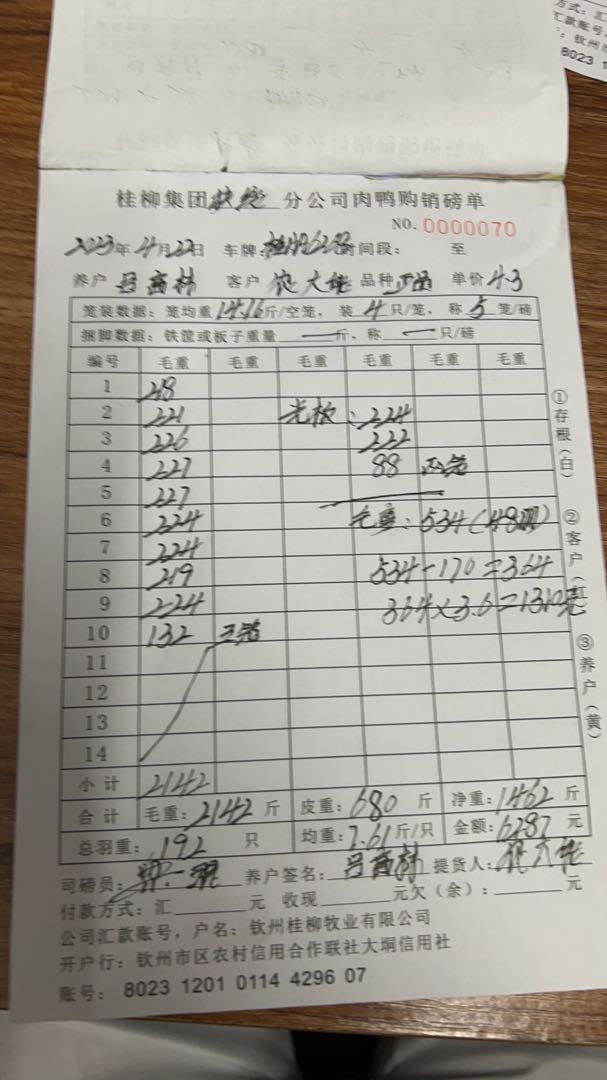 方式：汇
汇款账号，
：钦州市
8023 1
桂柳集团 分公司肉鸭购销磅单
NO. 0000070
2023年4月22日 车牌: 时间段： 至
养户 吕 林 客户 大 品种 单价 4.3
笼装数据：笼均重14.16斤/空笼，装 4 只/笼，称 5 笼/磅
捆脚数据：铁筐或板子重量 — 斤，称 — 只/磅
编号 毛重 毛重 毛重 毛重 毛重 毛重
1 218
2 221 光板：224
3 226 222
4 227 88 两笼
5 227
6 224 毛重：534（48只）
7 224
8 219 534-170=364
9 224 364×3.6=1310元
10 132 三笼
11
12
13
14
小计 2142
合计 毛重：2142斤 皮重：680斤 净重：1462斤
总羽重：192只 均重：7.61斤/只 金额：6287元
司磅员： 养户签名：吕 林 提货人： 大
付款方式：汇 元 收现 元欠（余）： 元
公司汇款账号，户名：钦州桂柳牧业有限公司
开户行：钦州市区农村信用合作联社大垌信用社
账号： 8023 1201 0114 4296 07
①存根（白）
②客户（红）
③养户（黄）